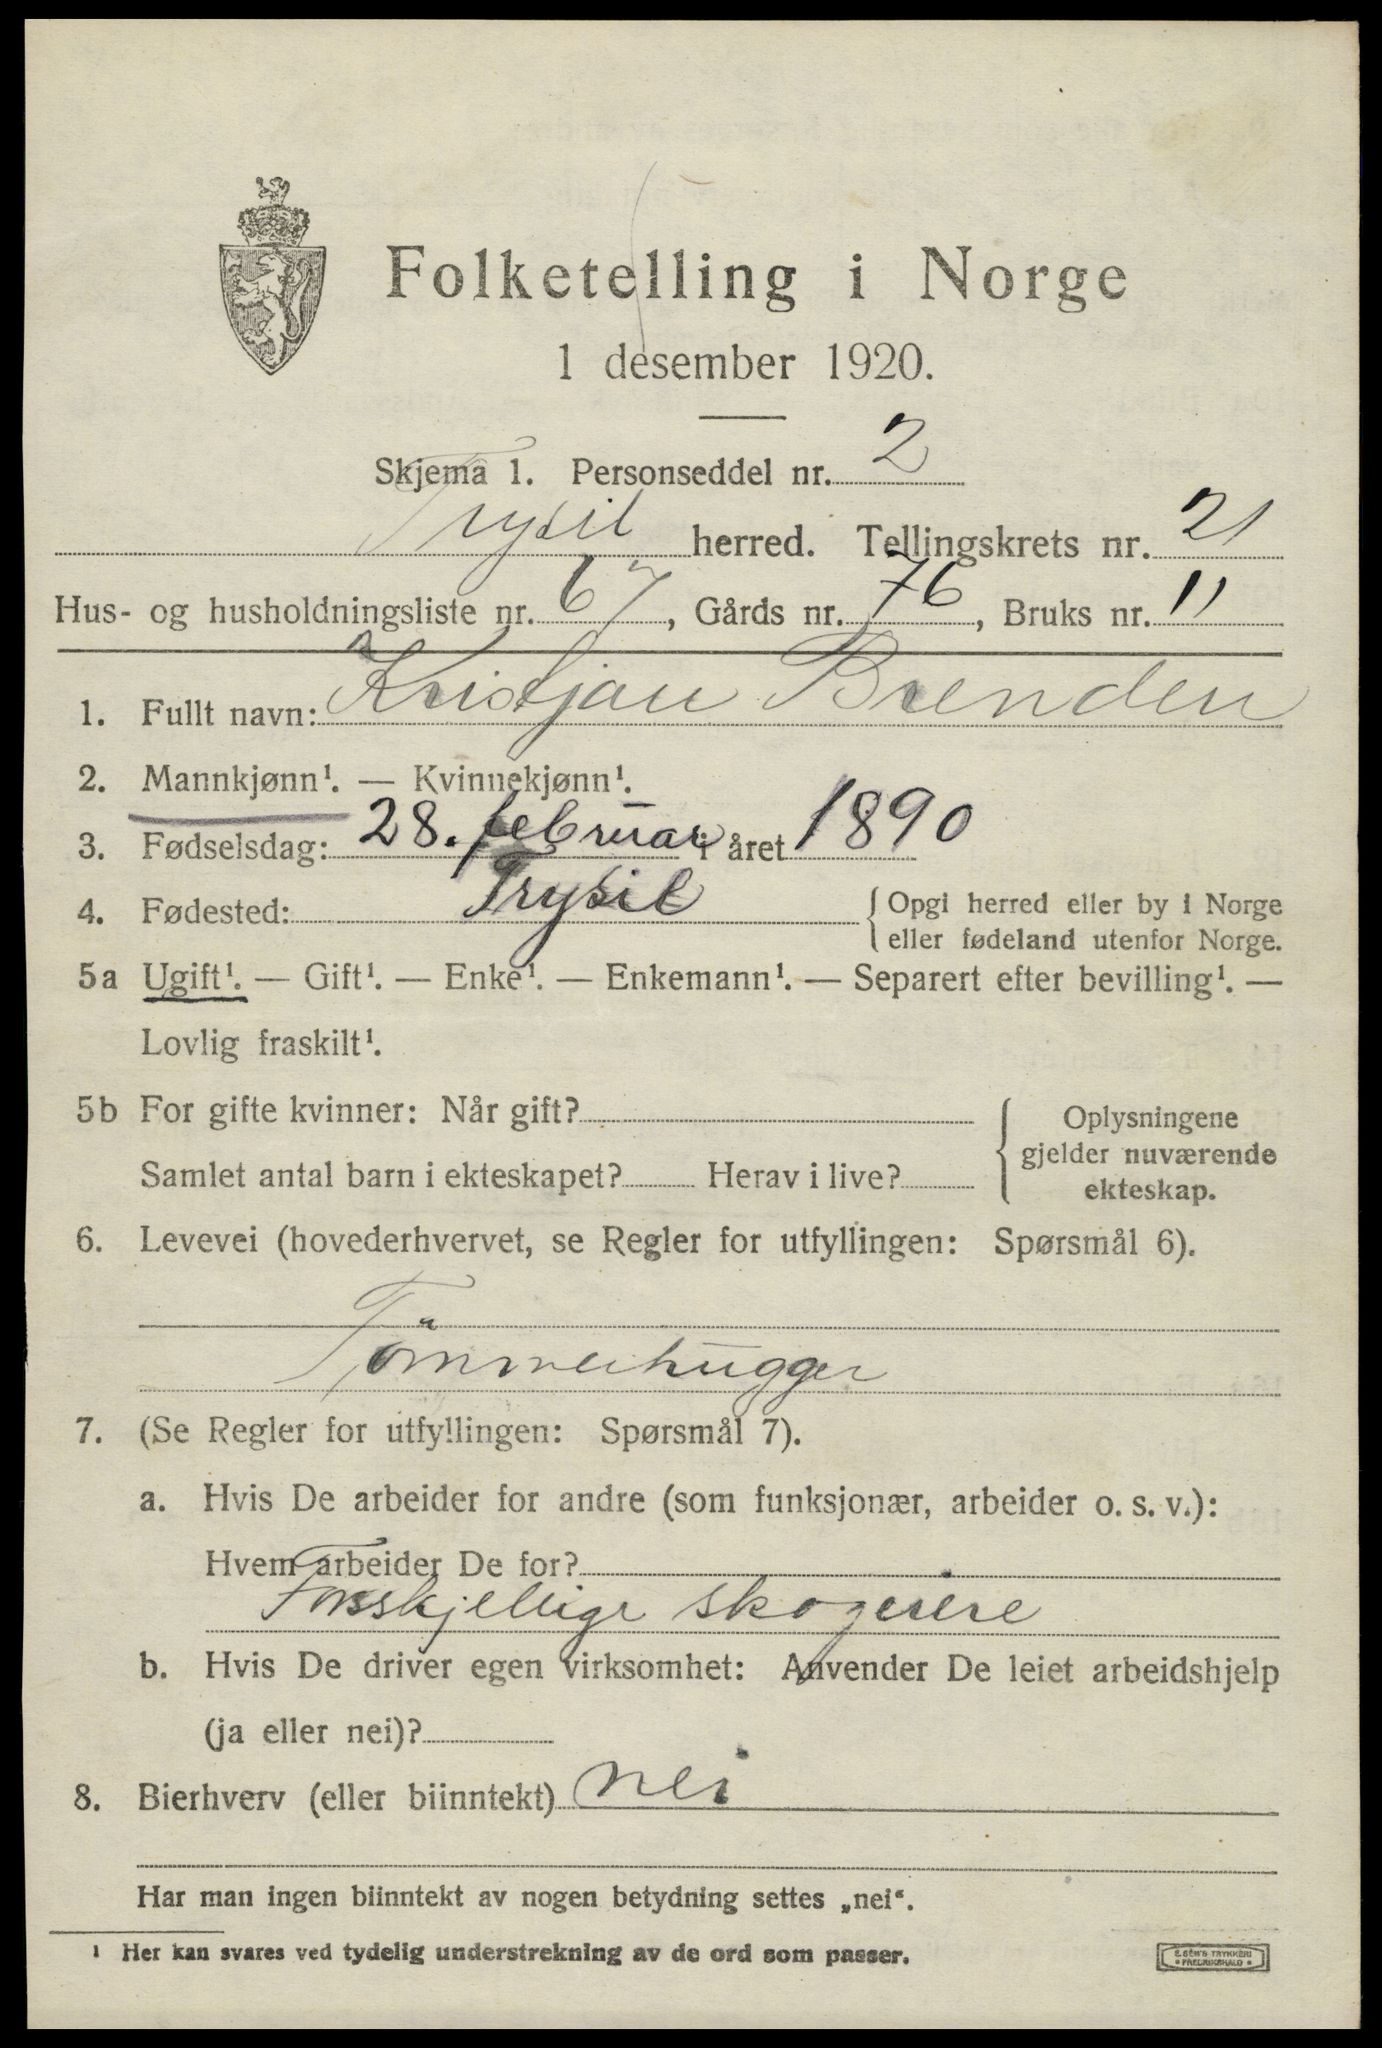 Folketelling i Norge
1 desember 1920.
Skjema 1. Personseddel nr. 2
Trysil herred. Tellingskrets nr. 21
Hus- og husholdningsliste nr. 67, Gårds nr. 76, Bruks nr. 11
1. Fullt navn: Kristjan Brenden
2. Mannkjønn¹. — Kvinnekjønn¹.
3. Fødselsdag: 28. februar i året 1890
4. Fødested: Trysil { Opgi herred eller by i Norge
eller fødeland utenfor Norge.
5a Ugift¹. — Gift¹. — Enke¹. — Enkemann¹. — Separert efter bevilling¹. —
Lovlig fraskilt¹.
5b For gifte kvinner: Når gift?
Samlet antal barn i ekteskapet? Herav i live?
{ Oplysningene
gjelder nuværende
ekteskap.
6. Levevei (hovederhvervet, se Regler for utfyllingen: Spørsmål 6).
Tömmerhugger
7. (Se Regler for utfyllingen: Spørsmål 7).
a. Hvis De arbeider for andre (som funksjonær, arbeider o. s. v.):
Hvem arbeider De for?
Forskjellige skogeiere
b. Hvis De driver egen virksomhet: Anvender De leiet arbeidshjelp
(ja eller nei)?
8. Bierhverv (eller biinntekt) nei
Har man ingen biinntekt av nogen betydning settes „nei“.
¹ Her kan svares ved tydelig understrekning av de ord som passer.
E. SEM'S TRYKKERI
FREDRIKSHALD